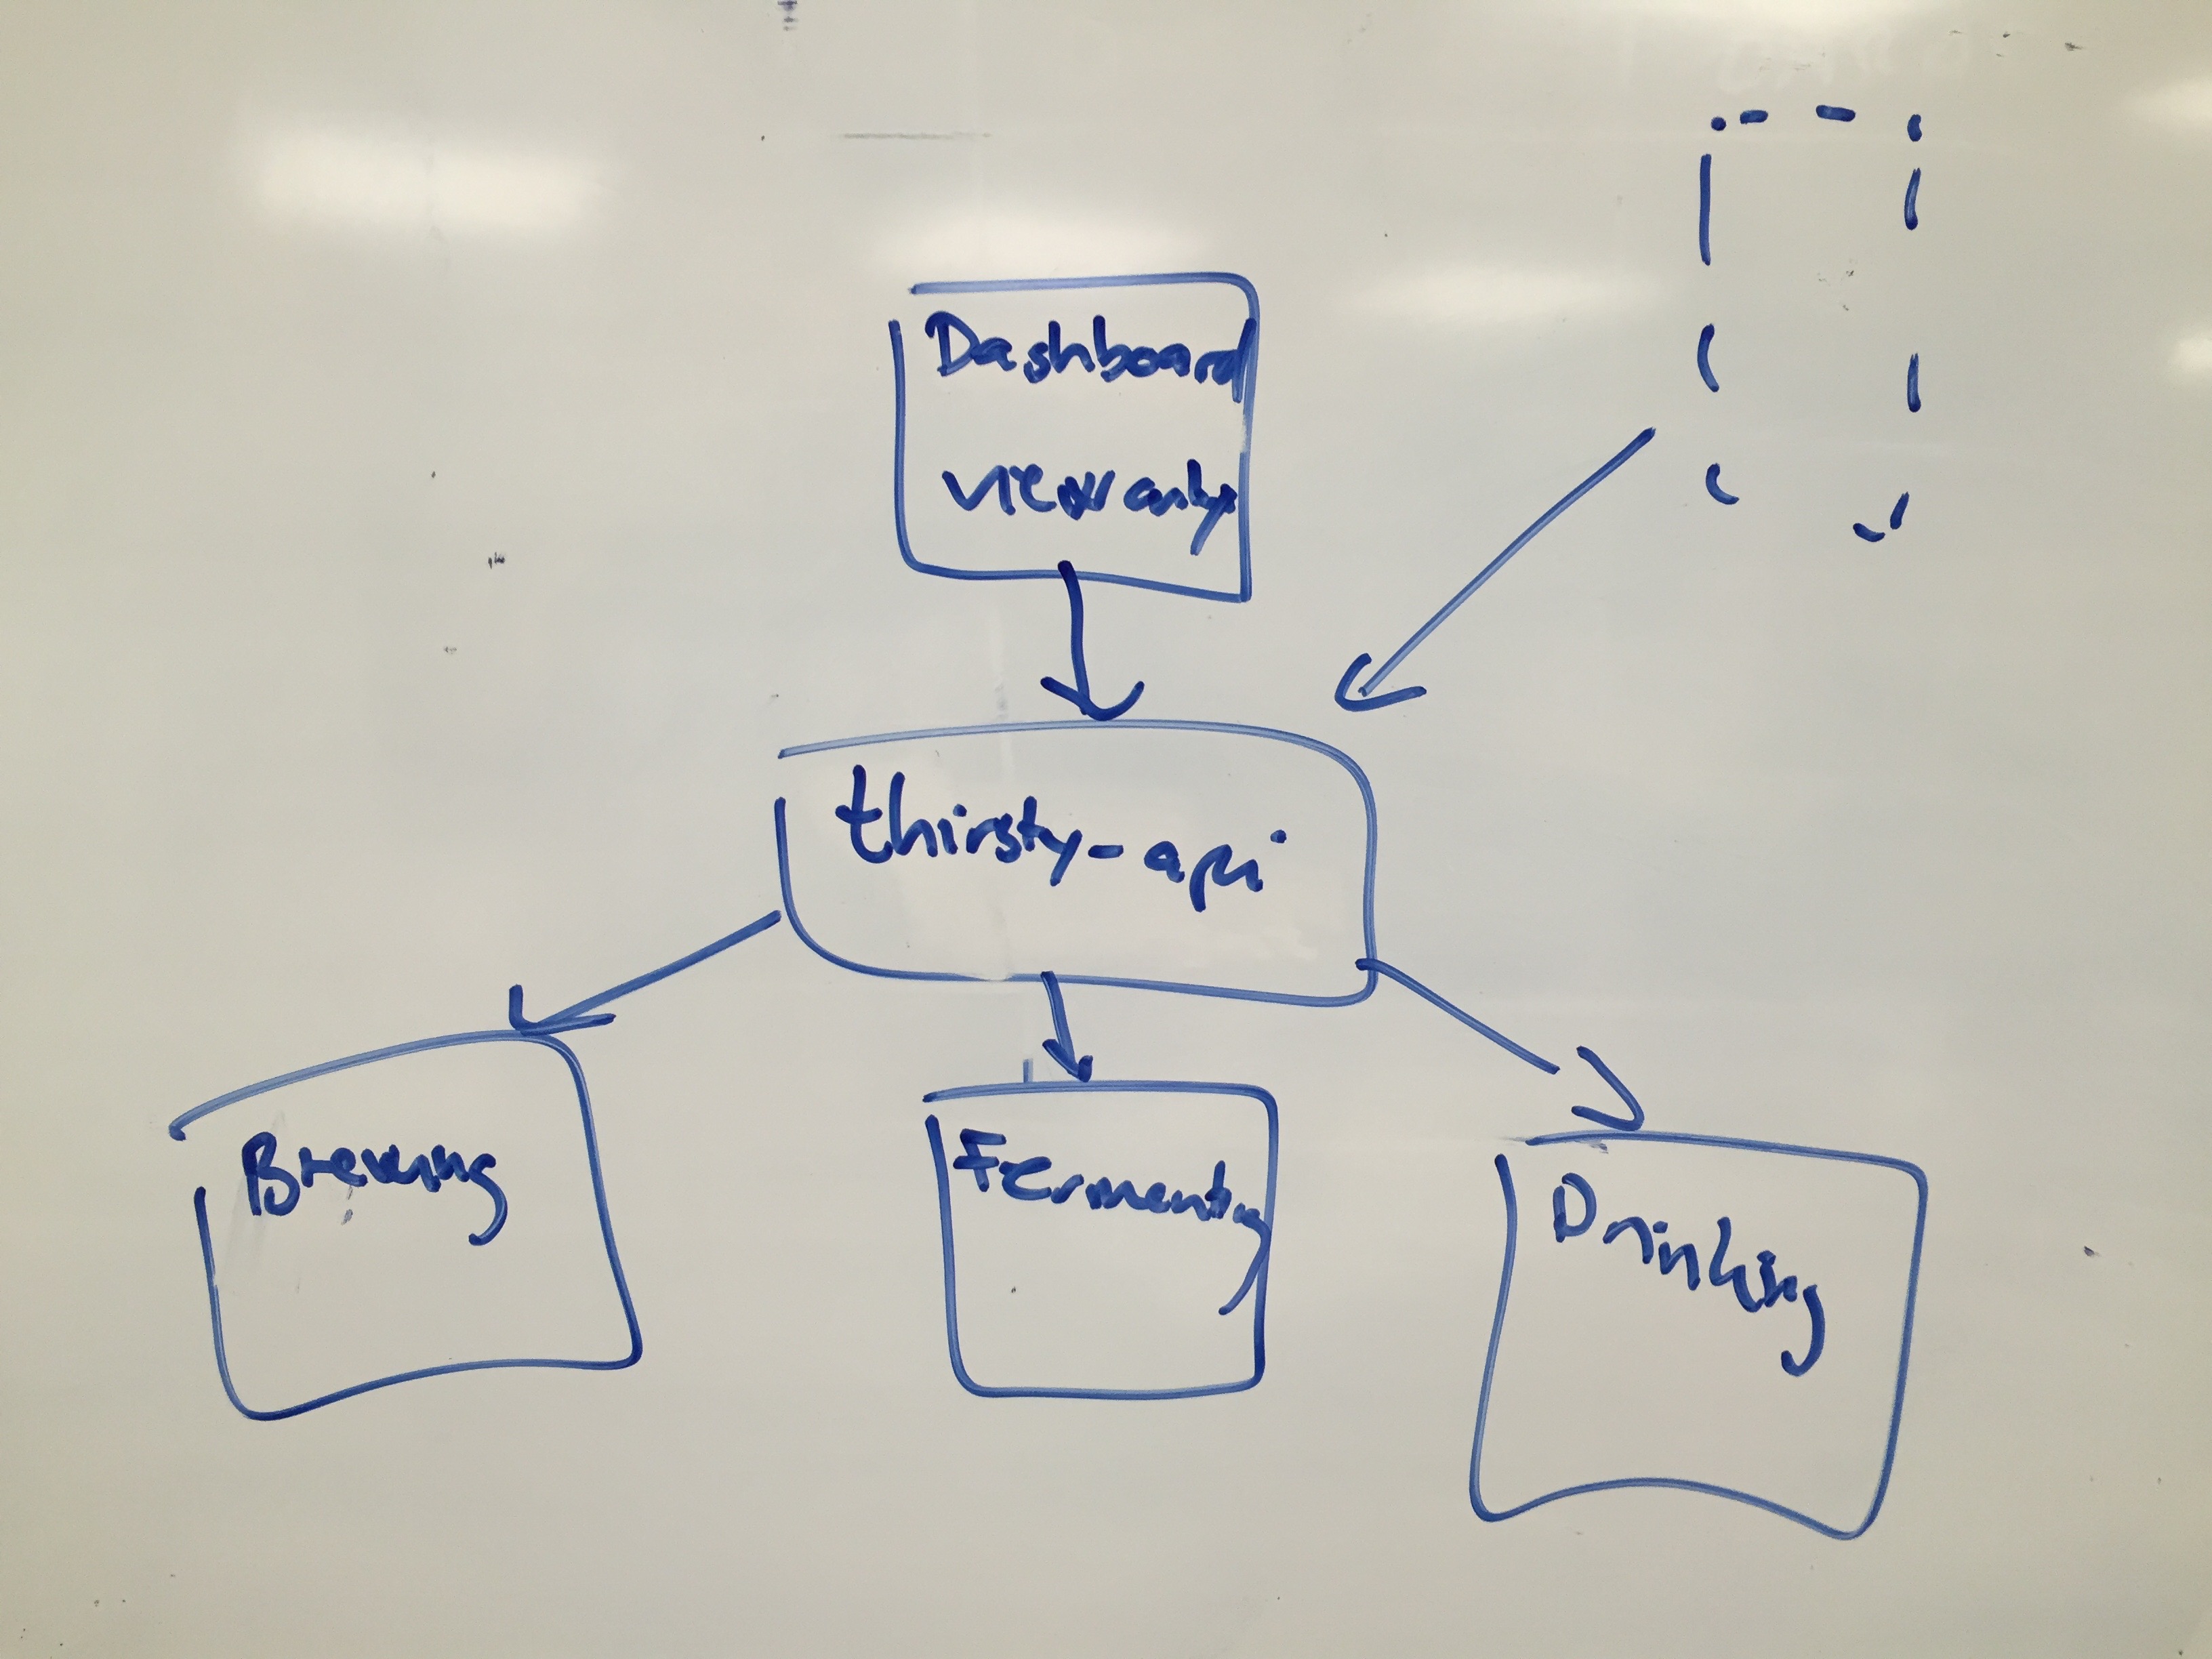 Dashboard
view only
thirsty-api
Brewing
Fermenting
Drinking